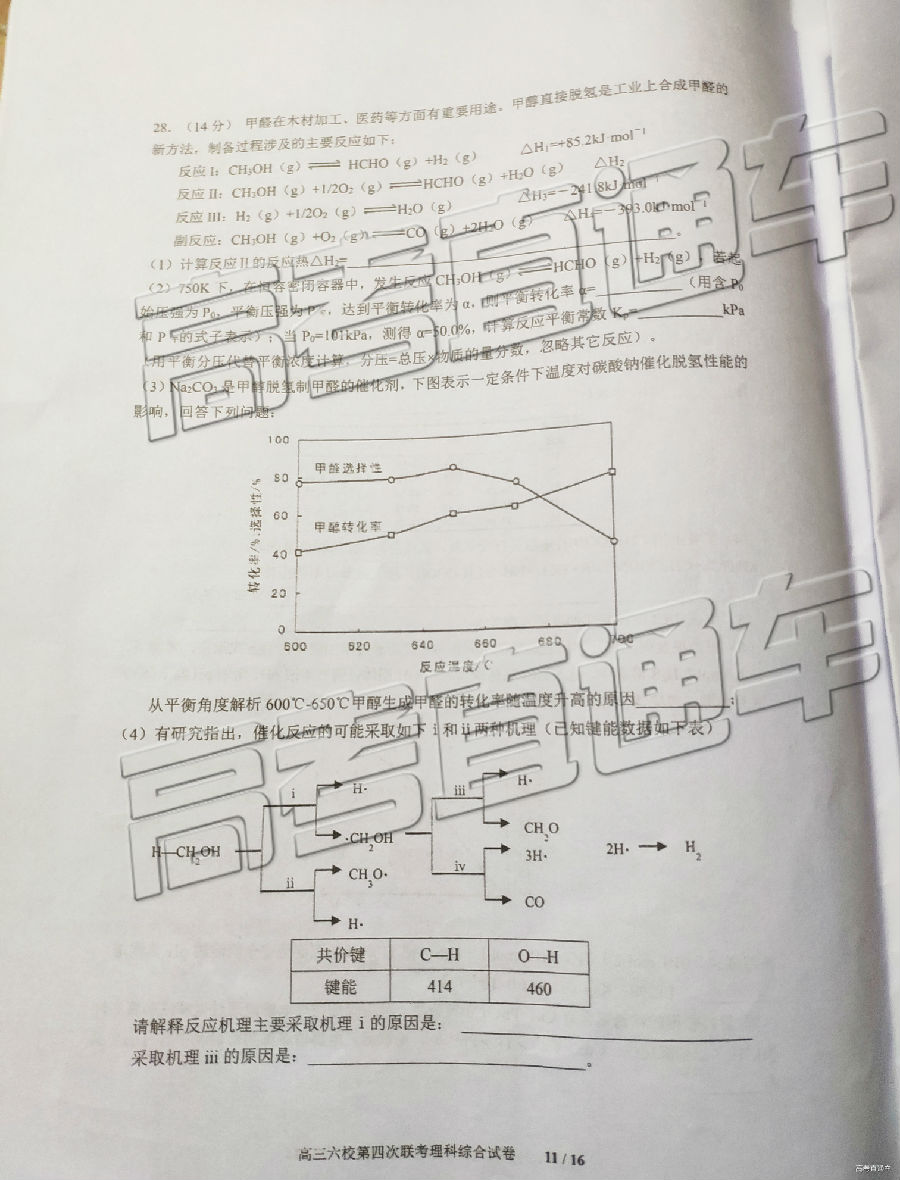 28．（14分） 甲醛在木材加工、医药等方面有重要用途。甲醇直接脱氢是工业上合成甲醛的
新方法，制备过程涉及的主要反应如下：
反应 I：CH₃OH（g）⇌ HCHO（g）+H₂（g） △H₁=+85.2kJ·mol⁻¹
反应 II：CH₃OH（g）+1/2O₂（g）⇌HCHO（g）+H₂O（g） △H₂
反应 III：H₂（g）+1/2O₂（g）⇌H₂O（g） △H₃=－241.8kJ·mol⁻¹
副反应：CH₃OH（g）+O₂（g）⇌CO（g）+2H₂O（g） △H₄=－393.0kJ·mol⁻¹
（1）计算反应 II 的反应热△H₂=________。
（2）750K 下，在恒容密闭容器中，发生反应 CH₃OH（g）⇌HCHO（g）+H₂（g），若起
始压强为 P₀，平衡压强为 P平，达到平衡转化率为 α，则平衡转化率 α=________（用含 P₀
和 P平的式子表示）；当 P₀=101kPa，测得 α=50.0%，计算反应平衡常数 Kₚ=________kPa
（用平衡分压代替平衡浓度计算，分压=总压×物质的量分数，忽略其它反应）。
（3）Na₂CO₃是甲醇脱氢制甲醛的催化剂，下图表示一定条件下温度对碳酸钠催化脱氢性能的
影响，回答下列问题：
100
80
60
40
20
0
转化率/%、选择性/%
甲醛选择性
甲醇转化率
600 620 640 660 680 700
反应温度/℃
从平衡角度解析 600℃-650℃甲醇生成甲醛的转化率随温度升高的原因________；
（4）有研究指出，催化反应的可能采取如下 i 和 ii 两种机理（已知键能数据如下表）
i H· iii H·
H—CH₂OH ·CH₂OH CH₂O
ii CH₃O· iv 3H· 2H· → H₂
H· CO
共价键 C—H O—H
键能 414 460
请解释反应机理主要采取机理 i 的原因是：________
采取机理 iii 的原因是：________。
高三六校第四次联考理科综合试卷 11 / 16
高考直通车
高考直通车
高考直通车